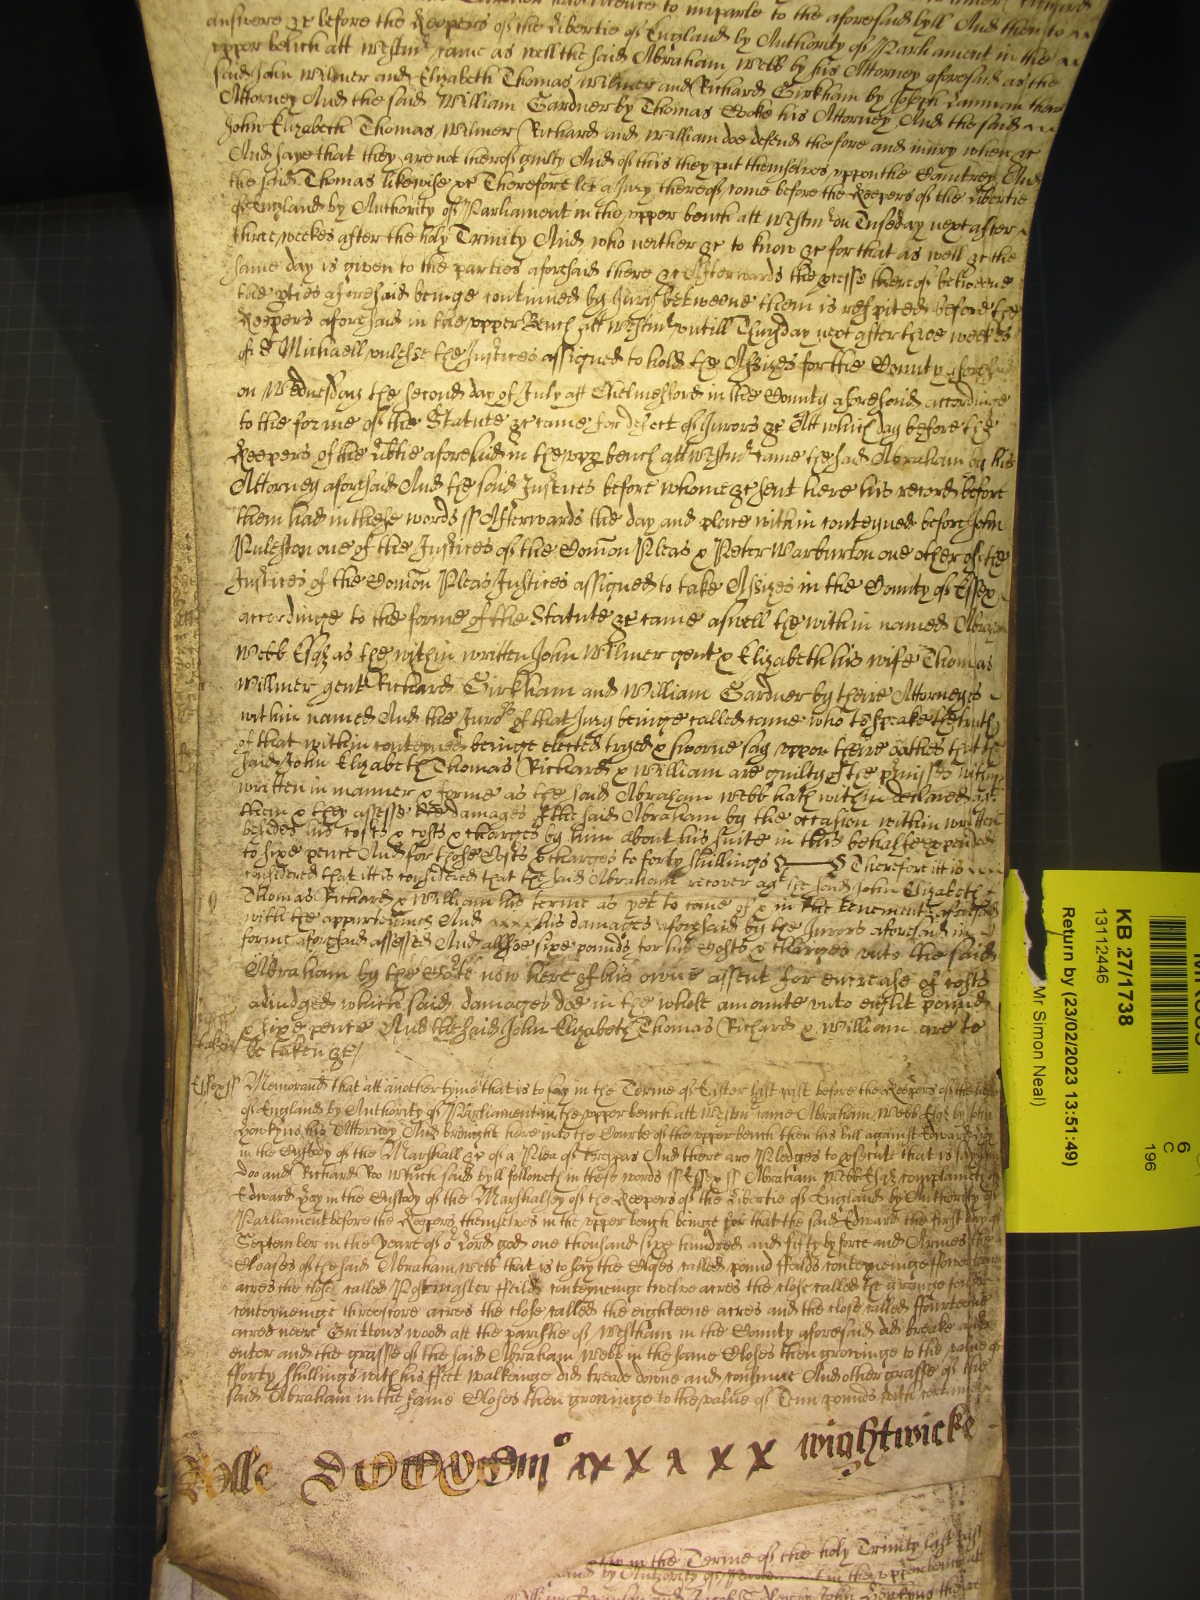 answere &c before the Keepers of the Libertie of England by Authority of Parliament in the
upper bench att Westmr came as well the said Abraham Webb by his Attorney aforesaid as the
said John Wilmer and Elizabeth Thomas Wilmer and Richard Girkham by Joseph their
Attorney And the said William Gardner by Thomas Cooke his Attorney And the said
John Elizabeth Thomas Wilmer Richard and William doe defend the force and iniury when &c
And saye that they are not thereof guilty And of this they put themselves uppon the Countrey And
the said Thomas likewise &c Therefore let a Jury thereof come before the Keepers of the Libertie
of England by Authority of Parliament in the upper bench att Westmr on Tuseday next after
three weekes after the holy Trinity And who neither &c to know &c for that as well &c the
same day is given to the parties aforesaid there &c Afterwards the pcesse thereof betweene
the pties aforesaid beinge continued by Jury betweene them is respited before the
Keepers aforesaid in the upper Bench att Westmr untill Thursday next after three weekes
of St Michaell unlesse the Justices assigned to hold the Assizes for the County aforesaid
on Wednesday the second day of July att Chelmesford in the County aforesaid accordinge
to the forme of the Statute &c came for defect of Jurors &c Att which day before the
Keepers of the libtie aforesaid in the upp bench att Westmr came the said Abraham by his
Attorney aforesaid And the said Justices before whome &c sent here his record before
them had in these words ss Afterwards the day and place within conteyned before John
Puleston one of the Justices of the Comon Pleas & Peter Warburton one other of the
Justices of the Comon Pleas Justices assigned to take Assizes in the County of Essex
accordinge to the forme of the Statute &c came aswell the within named Abraham
Webb Esqr as the within written John Wilmer gent & Elizabeth his wife Thomas
Willmer gent Richard Girkham and William Gardner by there Attorneyes
within named And the Jurors of that Jury beinge called came who to speake the truth
of that within conteyned beinge elected tryed & sworne say uppon there oathes that the
said John Elizabeth Thomas Richard & William are guilty of the pmisses within
written in manner & forme as the said Abraham Webb hath within declared agt
them & they assesse the damages of the said Abraham by the occasion within written
besides his costs & charges by him about his suite in this behalfe expended
to sixe pence And for those Costs & charges to forty shillings Therefore it is
considered that it is considered that the said Abraham recover agt the said John Elizabeth
Thomas Richard & William his terme as yet to come of & in the tenements aforesaid
with the appurtennces And his damages aforesaid by the Jurors aforesaid in
forme aforesaid assessed And allsoe sixe pounds for his Costs & charges unto the said
Abraham by the Cote now here of his owne assent for encrease of costs
adiudged which said damages doe in the whole amounte unto eight pounds
& sixe pence And the said John Elizabeth Thomas Richard & William are to
be taken &c
Essex ss Memorand that att another tyme that is to say in the Terme of Easter last past before the Keepers of the libtie
of England by Authority of Parliament in the upper bench att Westmr came Abraham Webb Esqr by John
Hoskyns his Attorney And brought here into the Courte of the upper bench then his bill against Edward
in the Custody of the Marshall &c of a Plea of trespas And there are Pledges to psecute that is say John
Doo and Richard Roo Which said byll followeth in these words ss Essex ss Abraham Webb Esqr complaineth of
Edward in the Custody of the Marshalsey of the Keepers of the Libertie of England by Authority of
Parliament before the Keepers themselves in the upper bench beinge for that the said Edward the first day of
September in the yeare of or Lord god one thousand sixe hundred and fifty by force and Armes the
Closes of the said Abraham Webb that is to say the Closes called pound feilds conteyneinge
acres the close called Postmaster ffeild conteyneinge twelve acres the close called the grange feild
conteyneinge threescore acres the close called the eighteene acres and the close called ffourteene
acres neere Grittons wood att the parishe of Westham in the County aforesaid did breake and
enter and the grasse of the said Abraham Webb in the same Closes then groweinge to the value of
fforty shillings with his ffeet walkeinge did treade downe and consume And other grasse of the
said Abraham in the same Closes then groweinge to the value of Tenn pounds with certaine
Rolle wightwicke
in the Terme of the holy Trinity last past
KB 27/1738
13112446
Return by (23/02/2023 13:51:49)
Mr Simon Neal)
6
C
196